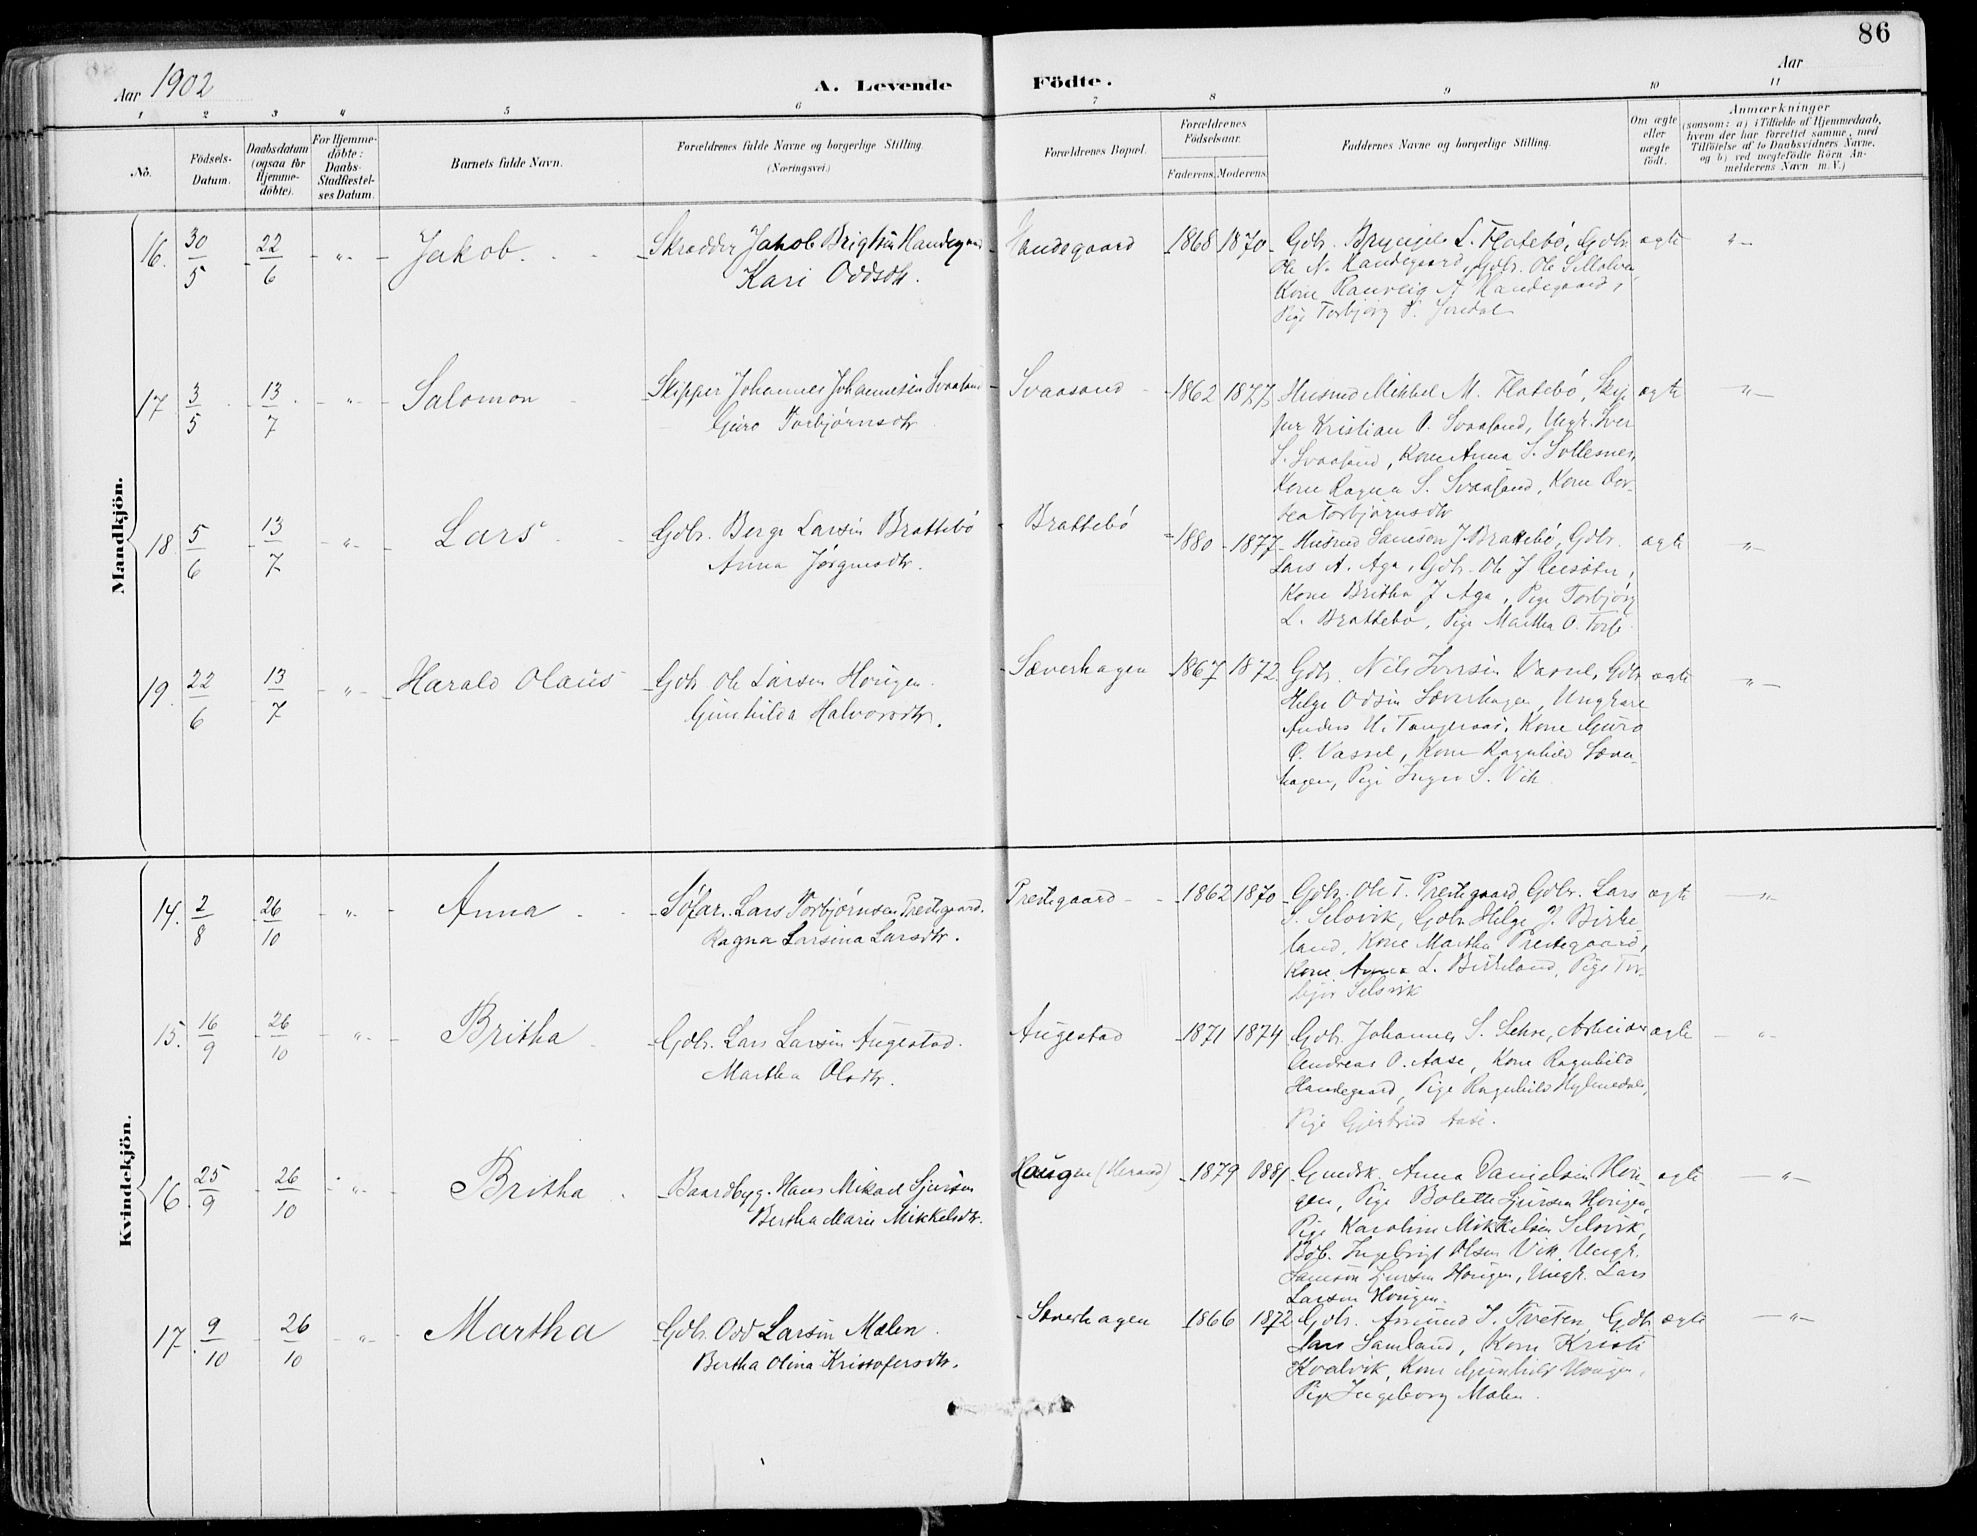 86
Aar 1902
A. Levende Födte.
Aar
1 2 3 4 5 6 7 8 9 10 11
No.
Födsels-Datum.
Daabsdatum (ogsaa for Hjemmedöbte).
For Hjemmedöbte: Daabs-Stadfæstelses Datum.
Barnets fulde Navn.
Forældrenes fulde Navne og borgerlige Stilling. (Næringsvei.)
Forældrenes Bopæl.
Forældrenes Födselsaar.
Faderens. Moderens.
Faddernes Navne og borgerlige Stilling.
Om ægte eller uægte födt.
Anmærkninger (saasom: a) i Tilfælde af Hjemmedaab, hvem der har forrettet samme, med Tilföielse af to Daabsvidners Navne, og b) ved uægtefödte Börn Anmelderens Navn m.V.)
Mandkjön.
16. 30/5 22/6 -"- Jakob.
Skrædder Jakob Brigtsen Handegaard
Kari Oddsdtr.
Handegaard 1868 1870
Gdbr. Bryngel L. Flatebö, Gdbr.
Ole N. Handegaard, Gdbr. Ole
Kone Ranveig Handegaard,
Pige Torbjörg Jondal
ægte -"-
17 3/5 13/7 -"- Salomon
Skipper Johannes Johannesen Svaasand
Guro Torbjørnsdtr
Svaasand 1862 1877
Husmd Mikkel M. Flatebö, Skip
per Kristian O. Svaasand, Ungk. Iver
S. Svaasand, Kone Anna S. Sollesnes,
Kone Ragna S. Svaasand, Kone Dor-
tea Torbjørnsdtr
ægte -"-
18 5/6 13/7 -"- Lars
Gdbr. Berge Larsen Brattebö
Anna Jørgensdtr.
Brattebö 1880 1877
Husmd Samson J Brattebö, Gdbr.
Lars A. Aga, Gdbr. Ole J
Kone Britha J Aga, Pige Torbjørg
L. Brattebö, Pige Martha O.
ægte -"-
19. 22/6 13/7 -"- Harald Olaus
Gdbr Ole Larsen Hougen.
Gunhilda Halvorsdtr.
Sæverhagen 1867 1872
Gdbr. Nils Iversen Vassel, Gdbr
Helge Odsen Sæverhagen, Ungkare
Anders H. Tangeraas, Kone Guro
O. Vassel, Kone Ragnhild Sæver-
hagen, Pige Inger S. Vik
ægte -"-
Kvindekjön.
14. 2/8 26/10 -"- Anna
Söfar. Lars Torbjørnsen Prestegaard.
Ragna Larsina Larsdtr.
Prestegaard 1862 1870
Gdbr. Ole T. Prestegaard, Gdbr. Lars
S. Selsvik, Gdbr. Helge J. Birke
land, Kone Martha Prestegaard,
Kone Anna L. Birkeland, Pige Tor-
bjør Selsvik
ægte -"-
15. 16/9 26/10 -"- Britha
Gdbr. Lars Larsen Augestad.
Martha Olsdtr.
Augestad 1871 1874
Gdbr. Johannes S. Sehre, Arbeider
Andreas O. Aase, Kone Ragnhild
Handegaard, Pige Ragnhild
Pige Gjertrud Aase.
ægte -"-
16. 25/9 26/10 -"- Britha
Baadbyg. Hans Mikael Sjursen
Bertha Marie Mikkelsdtr.
Haugen (Herand) 1879 1881
Anna Danielsen Hou-
gen, Pige Bolette Sjursen Hougen,
Pige Karoline Mikkelsen Selsvik,
Ingebrigt Olsen Vik, Ungk.
Samson Sjursen Hougen, Ungk. Lars
Larsen Hougen.
ægte -"-
17. 9/10 26/10 -"- Martha
Gdbr. Odd Larsen Malen.
Bertha Olina Kristofersdtr.
Sæverhagen 1866 1872
Gdbr. Amund S. Tveten, Gdbr
Lars Samland, Kone Kristi
Kvalvik, Kone Gunhild Hougen,
Pige Ingeborg Malen.
ægte -"-